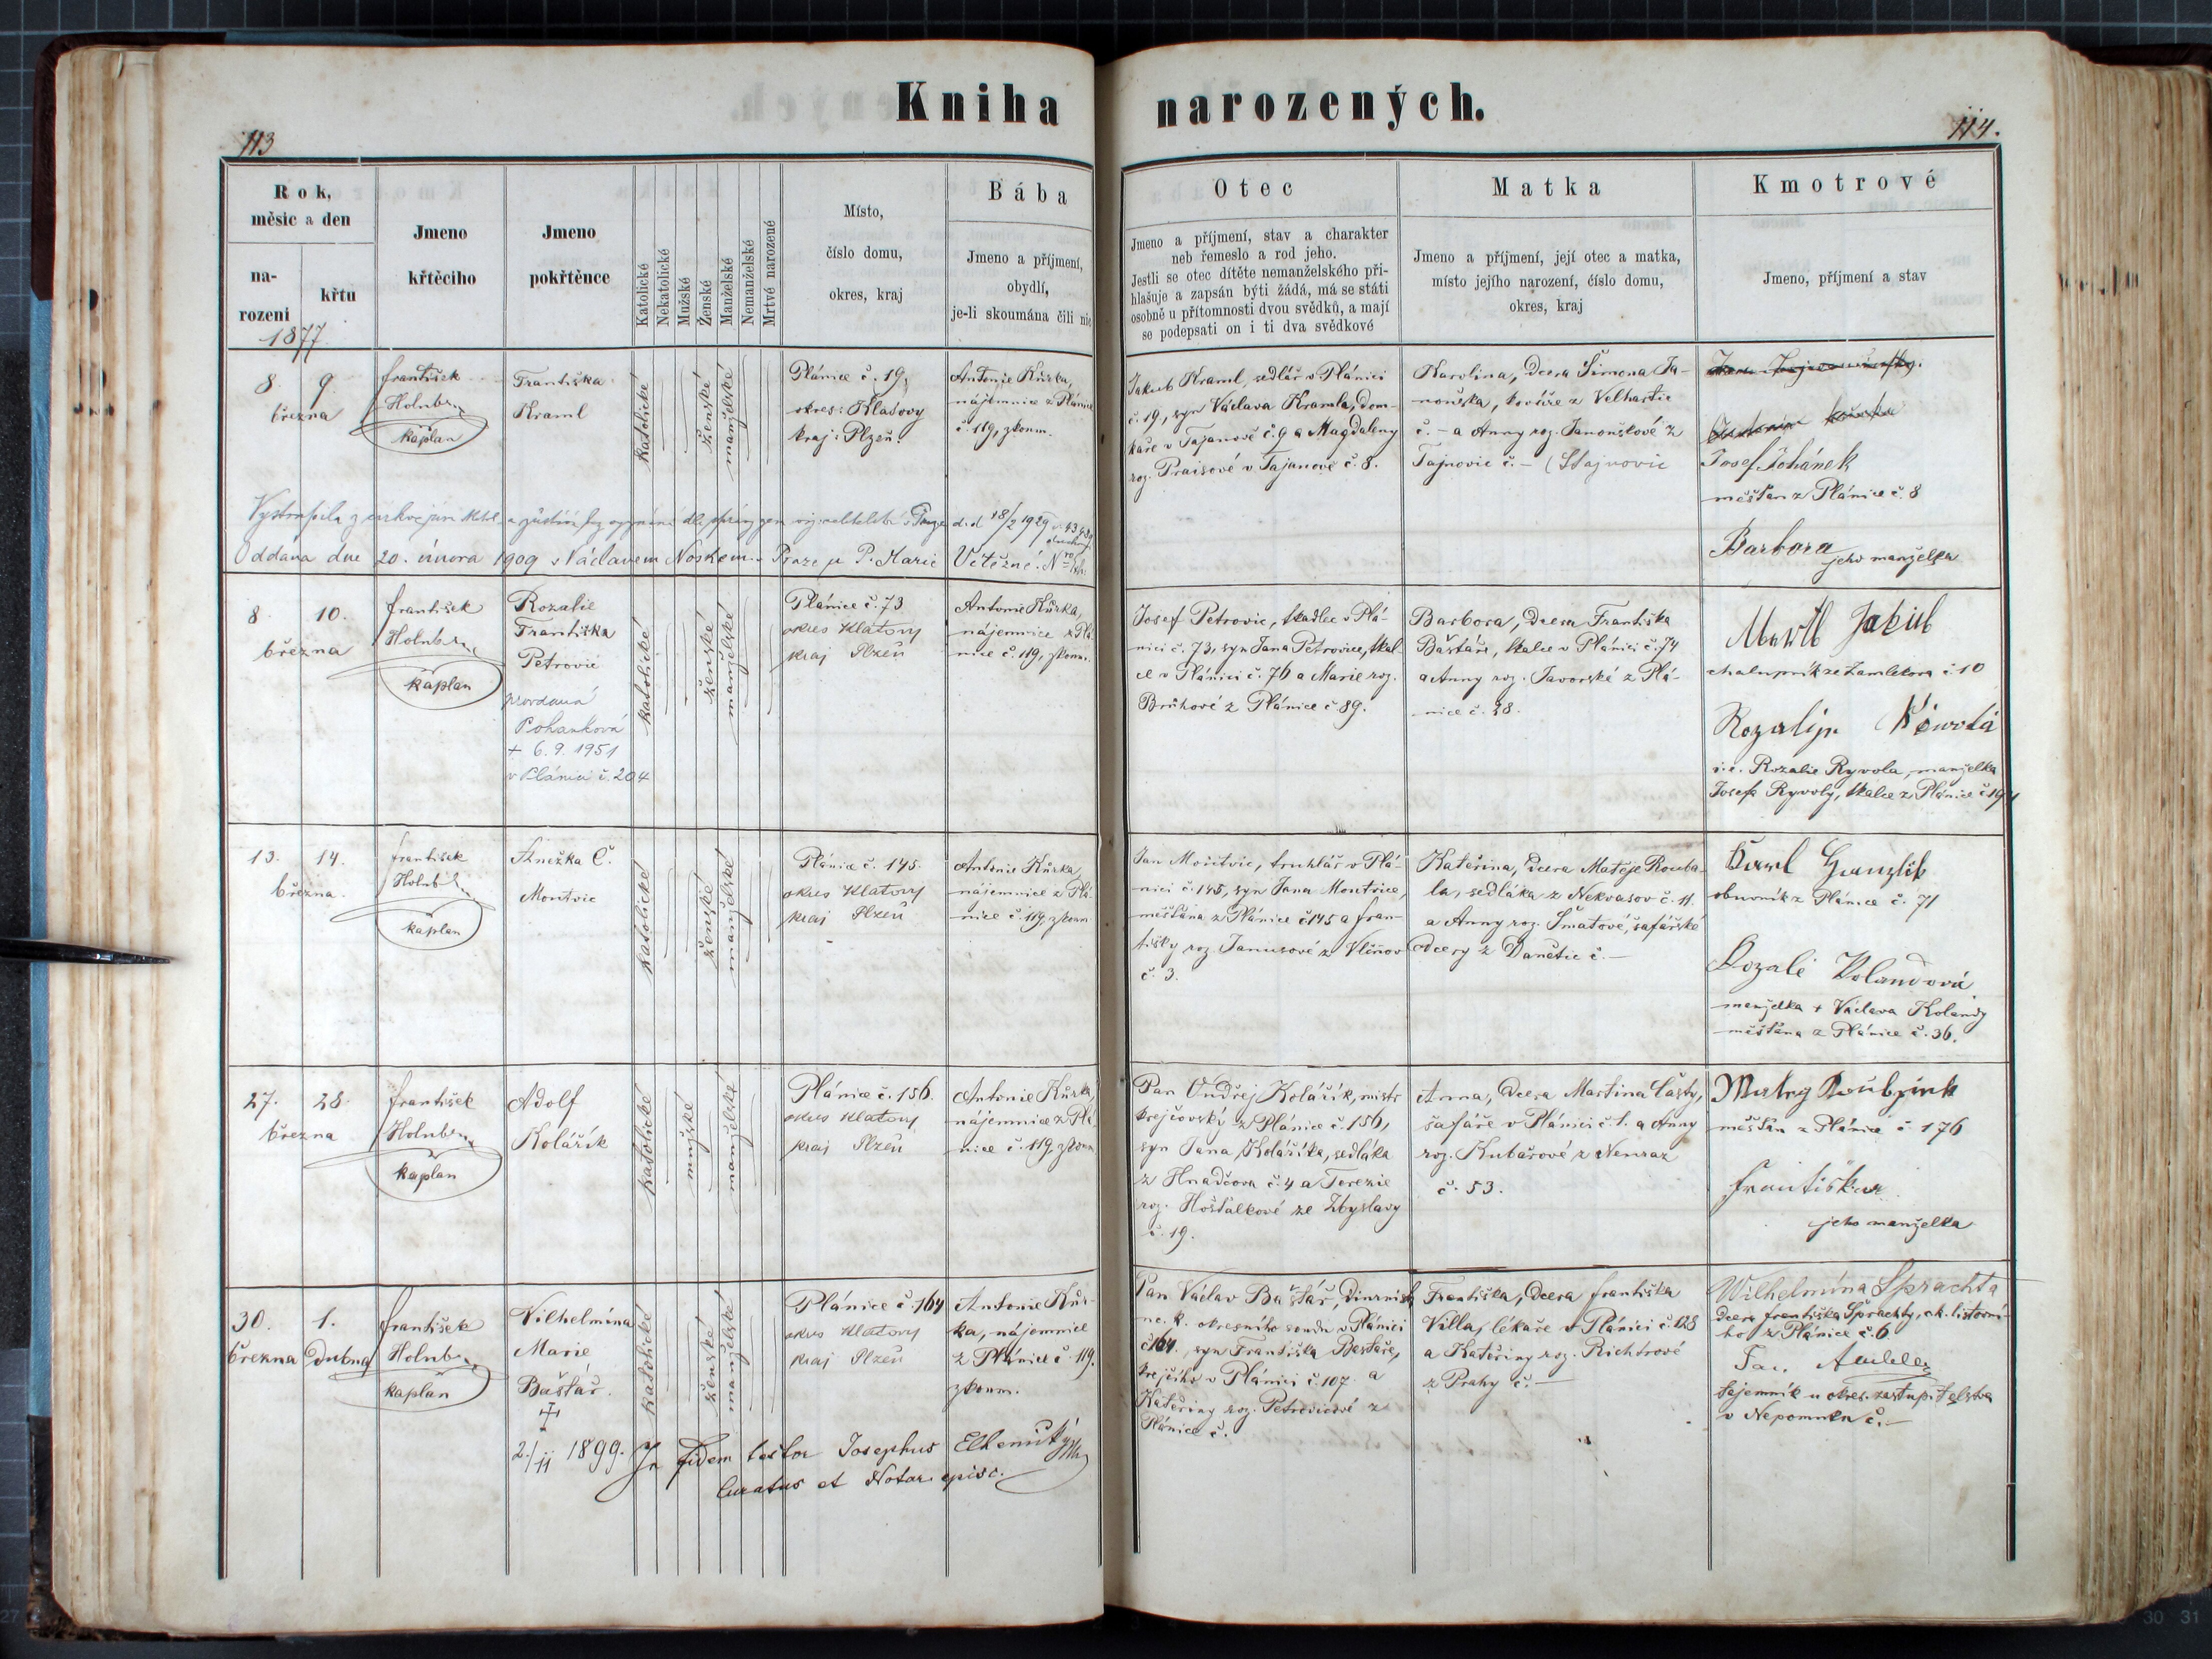 Kniha narozených.
113
114.
Rok, měsíc a den
narození
křtu
1877
Jmeno křtěcího
Jmeno pokřtěnce
Katolické
Nekatolické
Mužské
Ženské
Manželské
Nemanželské
Mrtvé narozené
Místo,
číslo domu,
okres, kraj
Bába
Jmeno a příjmení,
obydlí,
je-li skoumána čili nic
Otec
Jmeno a příjmení, stav a charakter
neb řemeslo a rod jeho.
Jestli se otec dítěte nemanželského při-
hlašuje a zapsán býti žádá, má se státi
osobně u přítomnosti dvou svědků, a mají
se podepsati on i ti dva svědkové
Matka
Jmeno a příjmení, její otec a matka,
místo jejího narození, číslo domu,
okres, kraj
Kmotrové
Jmeno, příjmení a stav
8. 9.
března
František
Holub
kaplan
Františka
Kraml
katolické
ženské
manželské
Plánice č. 19,
okres: Klatovy
kraj: Plzeň.
Antonie Kůrka,
nájemnice z Plánice
č. 119, zkoum.
Jakub Kraml, sedlář v Plánici
č. 19, syn Václava Kramla, dom-
káře v Tajanově č. 9 a Magdaleny
roz. Praisové v Tajanově č. 8.
Karolina, dcera Šimona Ja-
nouška, kováře z Velhartic
č. – a Anny roz. Janouškové z
Tajnovic č. – (Stajnovic
Josef Johánek
měšťan z Plánice č. 8
Barbora
jeho manželka
Vystoupila z církve
d. d. 18/2 1929
Oddana dne 20. února 1909 s Václavem Noskem v Praze u P. Marie Vítězné.
8. 10.
března
František
Holub
kaplan
Rozalie
Františka
Petrovic
provdaná
Pohanková
+ 6. 9. 1951
v Plánici č. 204
katolické
ženské
manželské
Plánice č. 73
okres Klatovy
kraj Plzeň
Antonie Kůrka,
nájemnice z Plá-
nice č. 119, zkoum.
Josef Petrovic, tkadlec v Plá-
nici č. 73, syn Jana Petrovice, tkal-
ce v Plánici č. 76 a Marie roz.
Brůhové z Plánice č. 89.
Barbora, dcera Františka
Baštáře, tkalce v Plánici č. 74
a Anny roz. Javorské z Plá-
nice č. 28.
Jakub
chalupník ze Zamlekova č. 10
i. e. Rozalie Ryvola, manželka
Josefa Ryvoly, tkalce z Plánice
13. 14.
března.
František
Holub
kaplan
Anežka C.
Montvic
katolické
ženské
manželské
Plánice č. 145.
okres Klatovy
kraj Plzeň
Antonie Kůrka,
nájemnice z Plá-
nice č. 119, zkoum.
Jan Montvic, truhlář v Plá-
nici č. 145, syn Jana Montvice,
měšťana z Plánice č. 145 a Fran-
tišky roz. Janusové z Vlčňov
č. 3.
Kateřina, dcera Matěje Rouba-
la, sedláka z Nekvasov č. 11.
a Anny roz. Šmatové, šafářské
dcery z Danětic č. –
Karel
obuvník z Plánice č. 71
Rozalie Kolandová
manželka + Václava Kolandy
měšťana z Plánice č. 36.
27. 28.
března
František
Holub
kaplan
Adolf
Kolářík
katolické
mužské
manželské
Plánice č. 156.
okres Klatovy
kraj Plzeň
Antonie Kůrka,
nájemnice z Plá-
nice č. 119, zkoum.
Pan Ondřej Kolářík, mistr
krejčovský z Plánice č. 156,
syn Jana Koláříka, sedláka
z Hnačova č. 4 a Terezie
roz. Hošťálkové ze Zbyslavy
č. 19.
Anna, dcera Martina Částy,
šafáře v Plánici č. 1. a Anny
roz. Kubašové z Neuraz
č. 53.
měšťan z Plánice č. 176
Františka
jeho manželka
30. 1.
března Dubna
František
Holub
kaplan
Vilhelmína
Marie
Baštář.
✝
2./11 1899.
katolické
ženské
manželské
Plánice č. 164
okres Klatovy
kraj Plzeň
Antonie Kůr-
ka, nájemnice
z Plánice č. 119.
zkoum.
In fidem testor Josephus
Curatus et Notar. episc.
Pan Václav Baštář, diurnista
u c. k. okresního soudu v Plánici
č. 164., syn Františka Baštáře,
krejčího v Plánici č. 107. a
Kateřiny roz. Petrovicové z
Plánice č.
Františka, dcera Františka
Villa, lékaře v Plánici č. 128
a Kateřiny roz. Richtrové
z Prahy č. –
Wilhelmina Sprachta
dcera Františka Sprachty, c. k. listovní-
ho z Plánice č. 6
tajemník u okres. zastupitelstva
v Nepomuku č. –